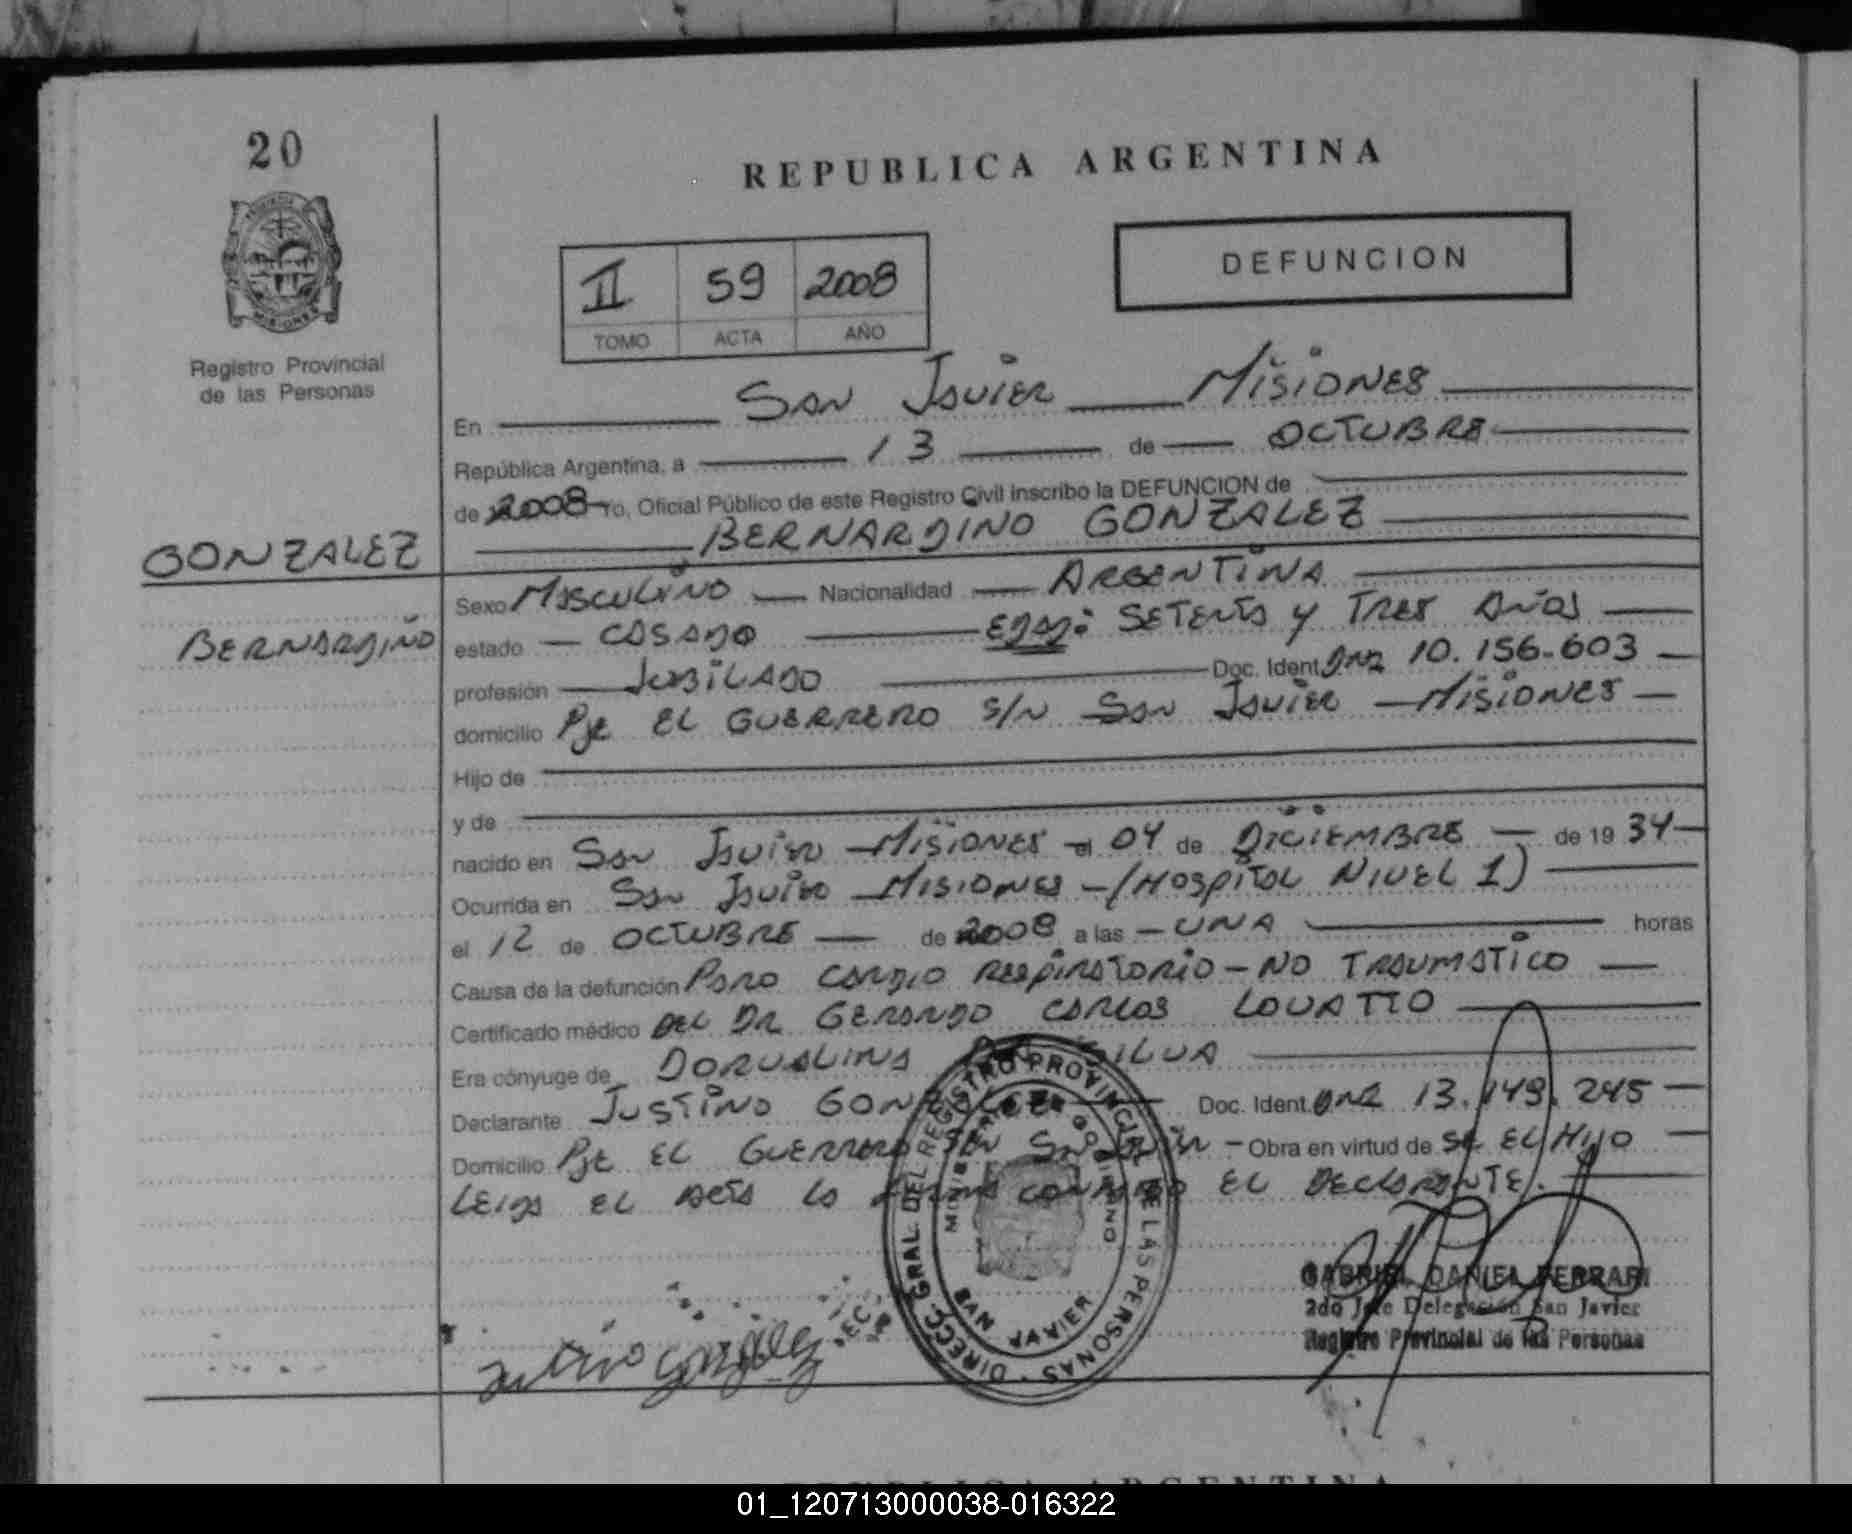 20
REPUBLICA ARGENTINA
DEFUNCION
II 59 2008
TOMO ACTA AÑO
MISIONES
Registro Provincial
de las Personas
En San Javier Misiones
República Argentina, a 13 de OCTUBRE
de 2008 Yo, Oficial Público de este Registro Civil inscribo la DEFUNCION de
BERNARDINO GONZALEZ
GONZALEZ
BERNARDIÑO
Sexo Masculino Nacionalidad ARGENTINA
estado CASADO EDAD: SETENTA y TRES AÑOS
profesión JUBILADO Doc. Ident. DNI 10.156.603
domicilio Pje EL GUERRERO S/N San Javier Misiones
Hijo de
y de
nacido en San Javier Misiones el 04 de DICIEMBRE de 1934
Ocurrida en San Javier Misiones (Hospital NIVEL 1)
el 12 de OCTUBRE de 2008 a las UNA horas
Causa de la defunción Paro Cardio Respiratorio - NO TRAUMATICO
Certificado médico DEL DR GERARDO CARLOS LOVATTO
Era cónyuge de DORVALINA DA SILVA
Declarante JUSTINO GONZALEZ Doc. Ident. DNI 13.149.245
Domicilio Pje EL GUERRERO S/N San Javier - Obra en virtud de SE EL HIJO
LEIDA EL ACTA LA FIRMA CONMIGO EL DECLARANTE.
DIRECC. GRAL. DEL REGISTRO PROVINCIAL DE LAS PERSONAS
MINISTERIO DE GOBIERNO
SAN JAVIER
GABRIEL DANIEL FERRARI
2do Jefe Delegación San Javier
Registro Provincial de las Personas
REPUBLICA ARGENTINA
01_120713000038-016322